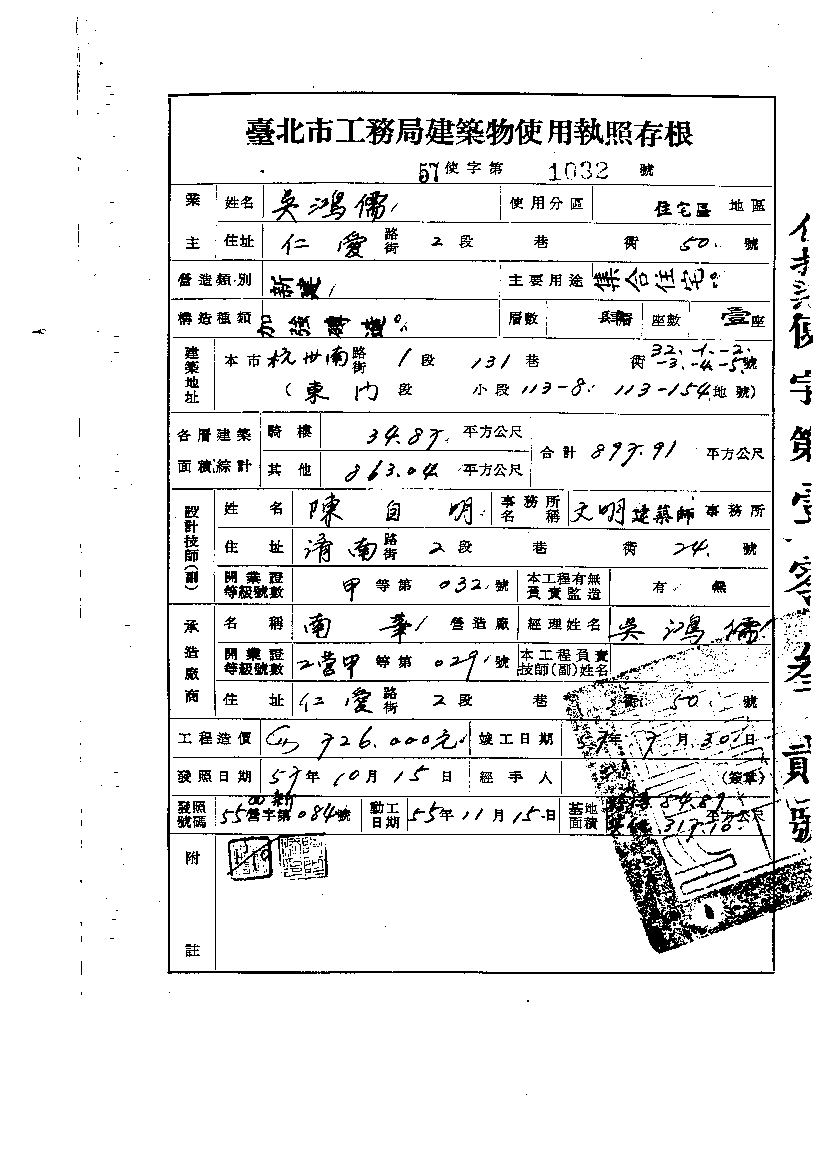 臺北市工務局建築物使用執照存根
57使字第 1032 號
業主 姓名 吳鴻儒 使用分區 住宅區 地區
住址 仁愛 路街 2 段 巷 衖 50 號
營造類別 新建 主要用途 集合住宅
構造種類 加強磚造 層數 肆層 座數 壹座
建築地址 本市 杭州南 路街 1 段 131 巷 衖 32.-1.-2.-3.-4.-5.號
(東門 段 小段 113-8. 113-154 地號)
各層建築面積綜計 騎樓 34.87 平方公尺 合計 897.91 平方公尺
其他 863.04 平方公尺
設計技師(副) 姓名 陳自明 事務所名稱 文明建築師 事務所
住址 濟南 路街 2 段 巷 衖 24 號
開業證等級號數 甲 等第 032 號 本工程有無負責監造 有 無
承造廠商 名稱 南華 營造廠 經理姓名 吳鴻儒
開業證等級號數 工營甲 等第 029 號 本工程負責技師(副)姓名
住址 仁愛 路街 2 段 巷 衖 50 號
工程造價 726.000元 竣工日期 57年 7 月 30 日
發照日期 57年 10 月 15 日 經手人 (簽章)
發照號碼 55 營字第 084 號 動工日期 55年 11 月 15 日 基地面積 平方公尺
附註
使字第壹零叁貳號